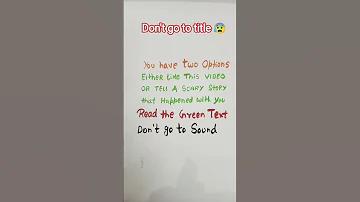 Don't go to title 😰
You have two Options
EITHER LIKE THIS VIDEO
OR TELL A SCARY STORY
that Happened with you
Read the Green Text
Don't go to Sound